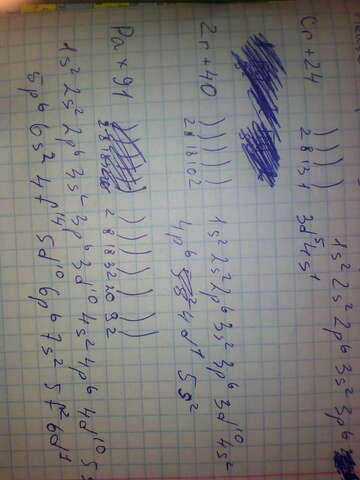 Cr +24 ) ) ) ) 1s² 2s² 2p⁶ 3s² 3p⁶
2 8 13 1 3d⁵ 4s¹
Zr +40 ) ) ) ) ) 1s² 2s² 2p⁶ 3s² 3p⁶ 3d¹⁰ 4s²
2 8 18 10 2 4p⁶ 4d¹ 5s²
Pa +91 ) ) ) ) ) ) )
2 8 18 32 20 9 2
1s² 2s² 2p⁶ 3s² 3p⁶ 3d¹⁰ 4s² 4p⁶ 4d¹⁰ 5s
5p⁶ 6s² 4f¹⁴ 5d¹⁰ 6p⁶ 7s² 5f² 6d¹